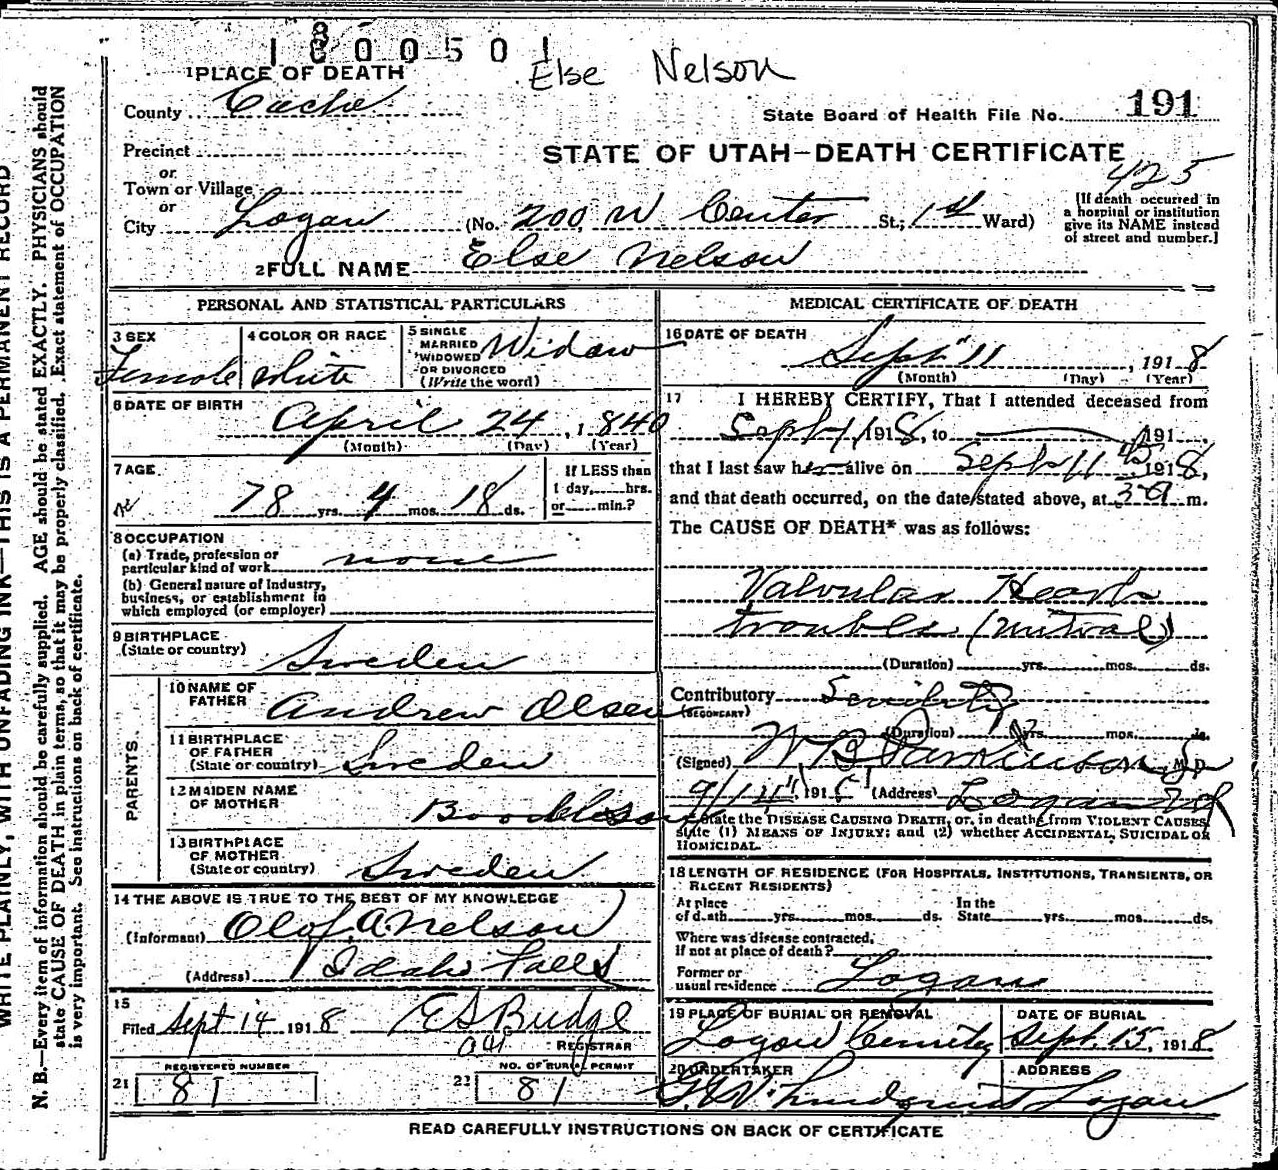 1800501
Else Nelson
1 PLACE OF DEATH
County Cache
State Board of Health File No. 191
Precinct
or
Town or Village
or
City Logan
STATE OF UTAH—DEATH CERTIFICATE
425
(No. 200 W Center St.; 1st Ward)
[If death occurred in
a hospital or institution
give its NAME instead
of street and number.]
2 FULL NAME Else Nelson
PERSONAL AND STATISTICAL PARTICULARS
3 SEX
Female
4 COLOR OR RACE
white
5 SINGLE
MARRIED
WIDOWED
OR DIVORCED
(Write the word)
Widow
6 DATE OF BIRTH
April 24, 1840
(Month) (Day) (Year)
7 AGE
78 yrs. 4 mos. 18 ds.
If LESS than
1 day, hrs.
or min.?
8 OCCUPATION
(a) Trade, profession or
particular kind of work none
(b) General nature of Industry,
business, or establishment in
which employed (or employer)
9 BIRTHPLACE
(State or country)
Sweden
PARENTS
10 NAME OF
FATHER
Andrew Olsen
11 BIRTHPLACE
OF FATHER
(State or country)
Sweden
12 MAIDEN NAME
OF MOTHER
13 BIRTHPLACE
OF MOTHER
(State or country)
Sweden
14 THE ABOVE IS TRUE TO THE BEST OF MY KNOWLEDGE
(Informant) Olof A. Nelson
(Address) Idaho Falls
15
Filed Sept 14 1918 E S Budge
REGISTRAR
REGISTERED NUMBER
21 81
NO. OF BURIAL PERMIT
22 81
MEDICAL CERTIFICATE OF DEATH
16 DATE OF DEATH
Sept 11, 1918
(Month) (Day) (Year)
17 I HEREBY CERTIFY, That I attended deceased from
Sept 1, 1918, to 191
that I last saw her alive on Sept 11 1918,
and that death occurred, on the date stated above, at m.
The CAUSE OF DEATH* was as follows:
Valvular Heart
trouble (mitral)
(Duration) yrs. mos. ds.
Contributory Senility
(SECONDARY)
(Duration) yrs. mos. ds.
(Signed) W B Parkinson M.D.
9/14 191 (Address) Logan
*State the DISEASE CAUSING DEATH, or, in deaths from VIOLENT CAUSES,
state (1) MEANS OF INJURY; and (2) whether ACCIDENTAL, SUICIDAL OR
HOMICIDAL.
18 LENGTH OF RESIDENCE (FOR HOSPITALS, INSTITUTIONS, TRANSIENTS, OR
RECENT RESIDENTS)
At place
of death yrs. mos. ds.
In the
State yrs. mos. ds.
Where was disease contracted,
if not at place of death?
Former or
usual residence Logan
19 PLACE OF BURIAL OR REMOVAL
Logan Cemetery
DATE OF BURIAL
Sept. 15, 1918
20 UNDERTAKER
Lundquist
ADDRESS
Logan
READ CAREFULLY INSTRUCTIONS ON BACK OF CERTIFICATE
WRITE PLAINLY, WITH UNFADING INK—THIS IS A PERMANENT RECORD
N. B.—Every item of information should be carefully supplied. AGE should be stated EXACTLY. PHYSICIANS should
state CAUSE OF DEATH in plain terms, so that it may be properly classified. Exact statement of OCCUPATION
is very important. See instructions on back of certificate.